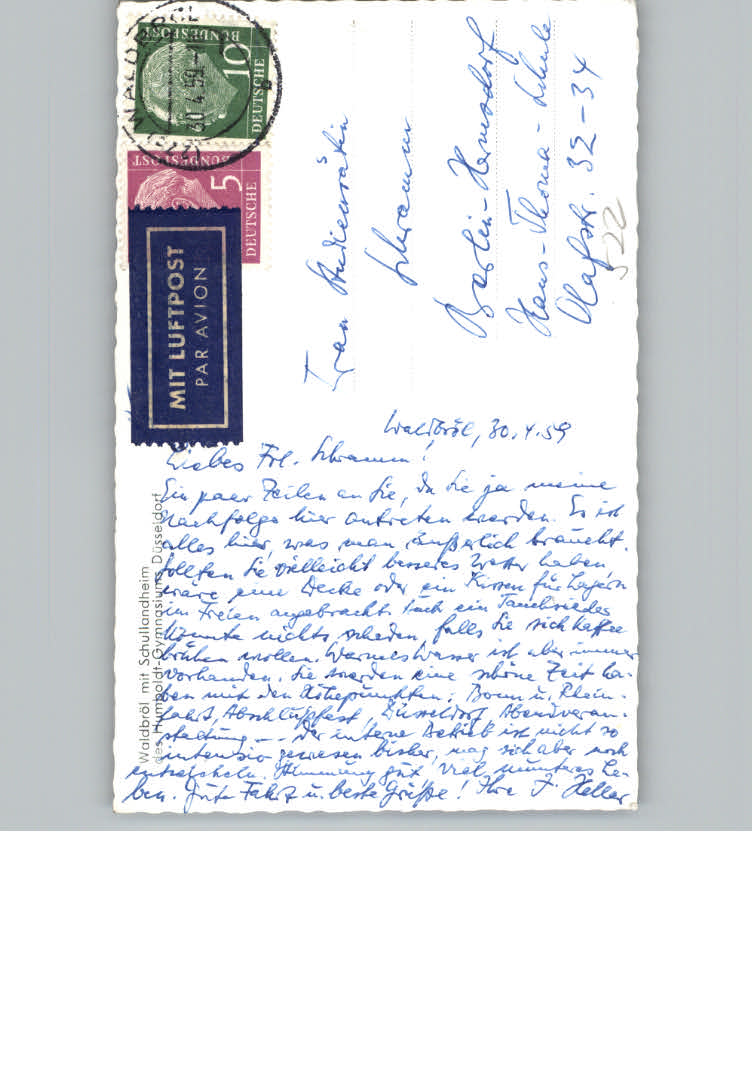 WALDBRÖL
30.4.59
DEUTSCHE BUNDESPOST
10
DEUTSCHE BUNDESPOST
5
MIT LUFTPOST
PAR AVION
Frau Studienrätin
Schramm
Berlin-Hermsdorf
Hans-Thoma-Schule
Olafstr. 32-34
522
Waldbröl, 30.4.59
Liebes Frl. Schramm!
Ein paar Zeilen an Sie, da Sie ja meine
Nachfolge hier antreten werden. Es ist
alles hier, was man äußerlich braucht.
Sollten Sie vielleicht besseres Wetter haben,
wäre eine Decke oder ein Kissen für Lagern
im Freien angebracht. Auch ein Tauchsieder
könnte nichts schaden, falls Sie sich Kaffee
brühen wollen. Warmes Wasser ist aber immer
vorhanden. Sie werden eine schöne Zeit ha-
ben mit den Höhepunkten: Bonn u. Rhein-
fahrt, Abschlußfest, Düsseldorf Abendveran-
staltung – Der interne Betrieb ist nicht so
intensiv gewesen bisher, mag sich aber noch
entwickeln. Stimmung gut, viel munteres Le-
ben. Gute Fahrt u. beste Grüße! Ihre J. Heller
Waldbröl mit Schullandheim
des Humboldt-Gymnasiums Düsseldorf